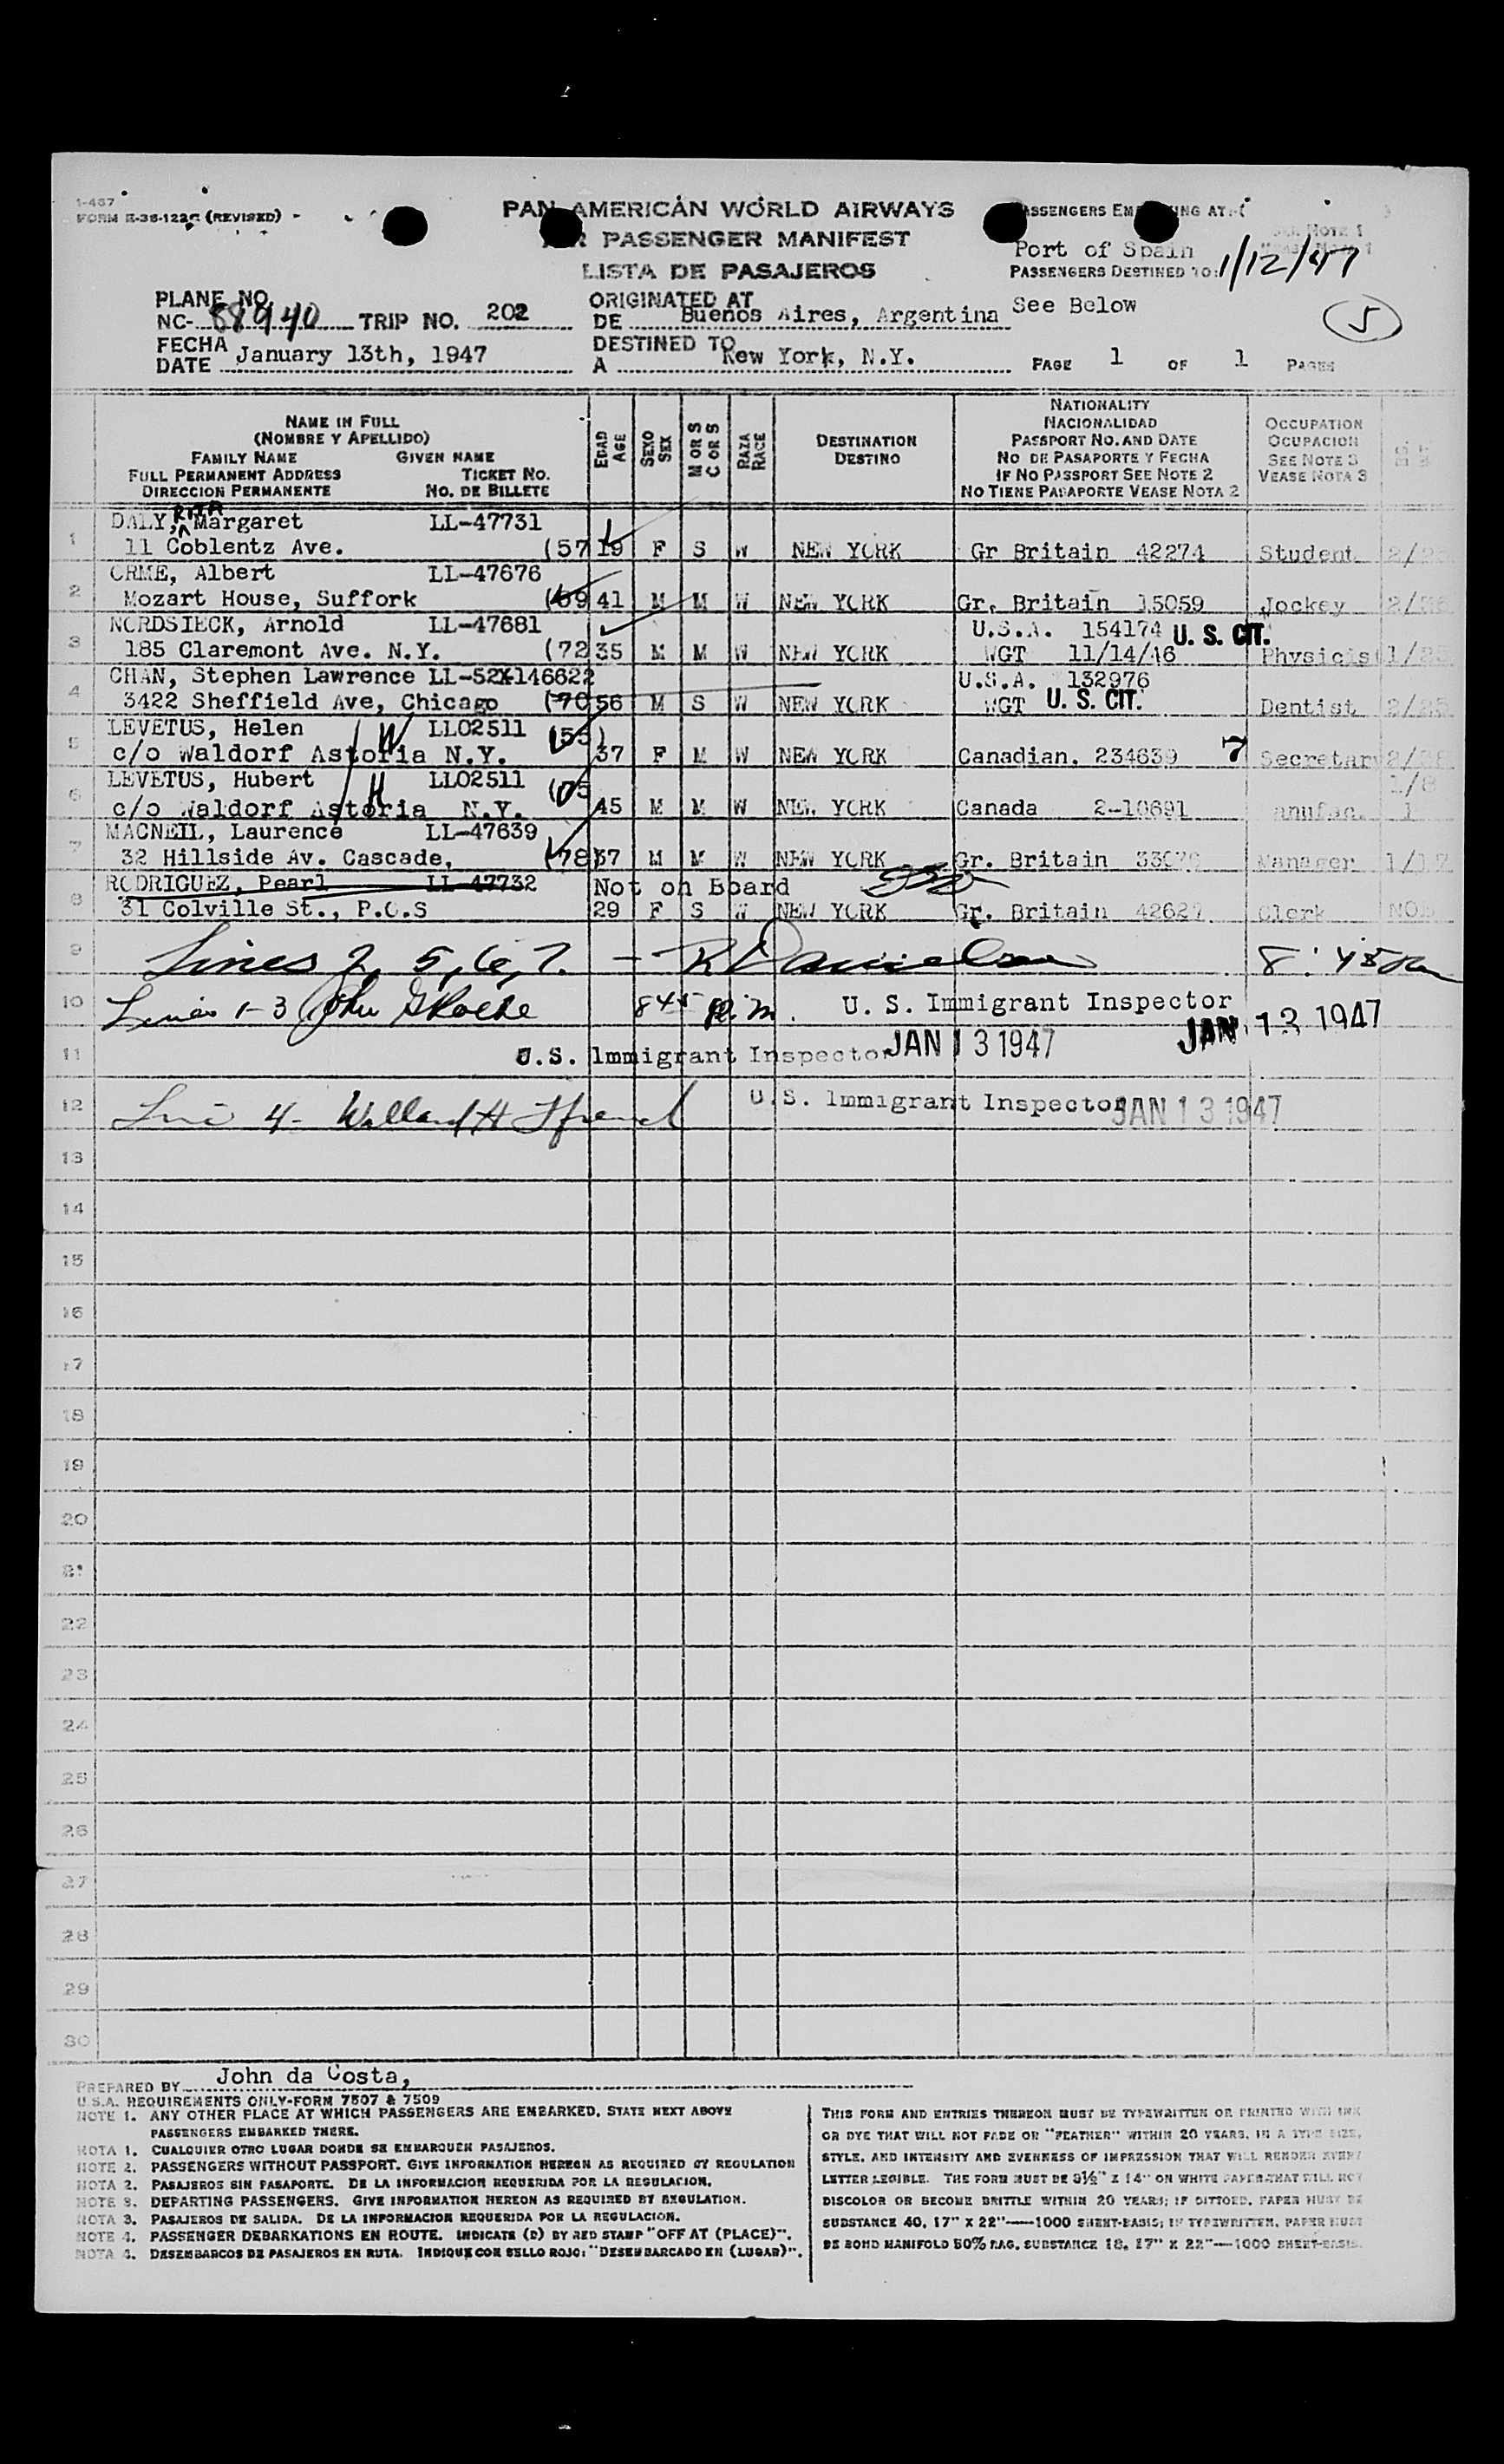 1-467
FORM E-38-122C (REVISED)
PAN AMERICAN WORLD AIRWAYS
PASSENGER MANIFEST
LISTA DE PASAJEROS
Port of Spain
PASSENGERS DESTINED TO: 1/12/47
See Below
PLANE NO.
NC- 88940 TRIP NO. 202
FECHA
DATE January 13th, 1947
ORIGINATED AT
DE Buenos Aires, Argentina
DESTINED TO
A New York, N.Y.
5
PAGE 1 OF 1 PAGES
NAME IN FULL
(NOMBRE Y APELLIDO)
FAMILY NAME GIVEN NAME
FULL PERMANENT ADDRESS TICKET NO.
DIRECCION PERMANENTE NO. DE BILLETE
EDAD AGE
SEXO SEX
M OR S C OR S
RAZA RACE
DESTINATION
DESTINO
NATIONALITY
NACIONALIDAD
PASSPORT NO. AND DATE
NO DE PASAPORTE Y FECHA
IF NO PASSPORT SEE NOTE 2
NO TIENE PASAPORTE VEASE NOTA 2
OCCUPATION
OCUPACION
SEE NOTE 3
VEASE NOTA 3
1 DALY, RITA Margaret LL-47731
11 Coblentz Ave. (57 19 F S W NEW YORK Gr Britain 42274 Student
2 ORME, Albert LL-47676
Mozart House, Suffork (69 41 M M W NEW YORK Gr. Britain 15059 Jockey
3 NORDSIECK, Arnold LL-47681 U.S.A. 154174 U. S. CIT.
185 Claremont Ave. N.Y. (72 35 M M W NEW YORK WGT 11/14/46 Physicis
4 CHAN, Stephen Lawrence LL-52X146622 U.S.A. 132976
3422 Sheffield Ave, Chicago (70 56 M S W NEW YORK WGT U. S. CIT. Dentist
5 LEVETUS, Helen LL02511 (55)
c/o Waldorf Astoria N.Y. 37 F M W NEW YORK Canadian. 234639 7 Secretary
6 LEVETUS, Hubert LL02511
c/o Waldorf Astoria N.Y. 45 M M W NEW YORK Canada 2-10691
7 MACNEIL, Laurence LL-47639
32 Hillside Av. Cascade, (78 37 M M W NEW YORK Gr. Britain Manager 1/17
8 RODRIGUEZ, Pearl LL-47732 Not on Board
31 Colville St., P.O.S 29 F S W NEW YORK Gr. Britain 42627 Clerk
9 Lines 2, 5, 6, 7. - R Danielson 8:45
10 Lines 1-3 John 845 p.m. U. S. Immigrant Inspector JAN 13 1947
11 U.S. Immigrant Inspector JAN 13 1947
12 Line 4- Willard H U.S. Immigrant Inspector JAN 13 1947
13
14
15
16
17
18
19
20
21
22
23
24
25
26
27
28
29
30
PREPARED BY John da Costa,
U.S.A. REQUIREMENTS ONLY-FORM 7507 & 7509
NOTE 1. ANY OTHER PLACE AT WHICH PASSENGERS ARE EMBARKED, STATE NEXT ABOVE
PASSENGERS EMBARKED THERE.
NOTA 1. CUALQUIER OTRO LUGAR DONDE SE EMBARQUEN PASAJEROS.
NOTE 2. PASSENGERS WITHOUT PASSPORT. GIVE INFORMATION HEREON AS REQUIRED BY REGULATION
NOTA 2. PASAJEROS SIN PASAPORTE. DE LA INFORMACION REQUERIDA POR LA REGULACION.
NOTE 3. DEPARTING PASSENGERS. GIVE INFORMATION HEREON AS REQUIRED BY REGULATION.
NOTA 3. PASAJEROS DE SALIDA. DE LA INFORMACION REQUERIDA POR LA REGULACION.
NOTE 4. PASSENGER DEBARKATIONS EN ROUTE. INDICATE (D) BY RED STAMP "OFF AT (PLACE)".
NOTA 4. DESEMBARCOS DE PASAJEROS EN RUTA. INDIQUE CON SELLO ROJO: "DESEMBARCADO EN (LUGAR)".
THIS FORM AND ENTRIES THEREON MUST BE TYPEWRITTEN OR PRINTED WITH INK
OR DYE THAT WILL NOT FADE OR "FEATHER" WITHIN 20 YEARS, IN A TYPE SIZE,
STYLE, AND INTENSITY AND EVENNESS OF IMPRESSION THAT WILL RENDER EVERY
LETTER LEGIBLE. THE FORM MUST BE 8½" X 14" ON WHITE PAPER THAT WILL NOT
DISCOLOR OR BECOME BRITTLE WITHIN 20 YEARS; IF DITTOED, PAPER MUST BE
SUBSTANCE 40, 17" X 22"—1000 SHEET-BASIS; IF TYPEWRITTEN, PAPER MUST
BE BOND MANIFOLD 50% RAG, SUBSTANCE 18, 17" X 22"—1000 SHEET-BASIS.